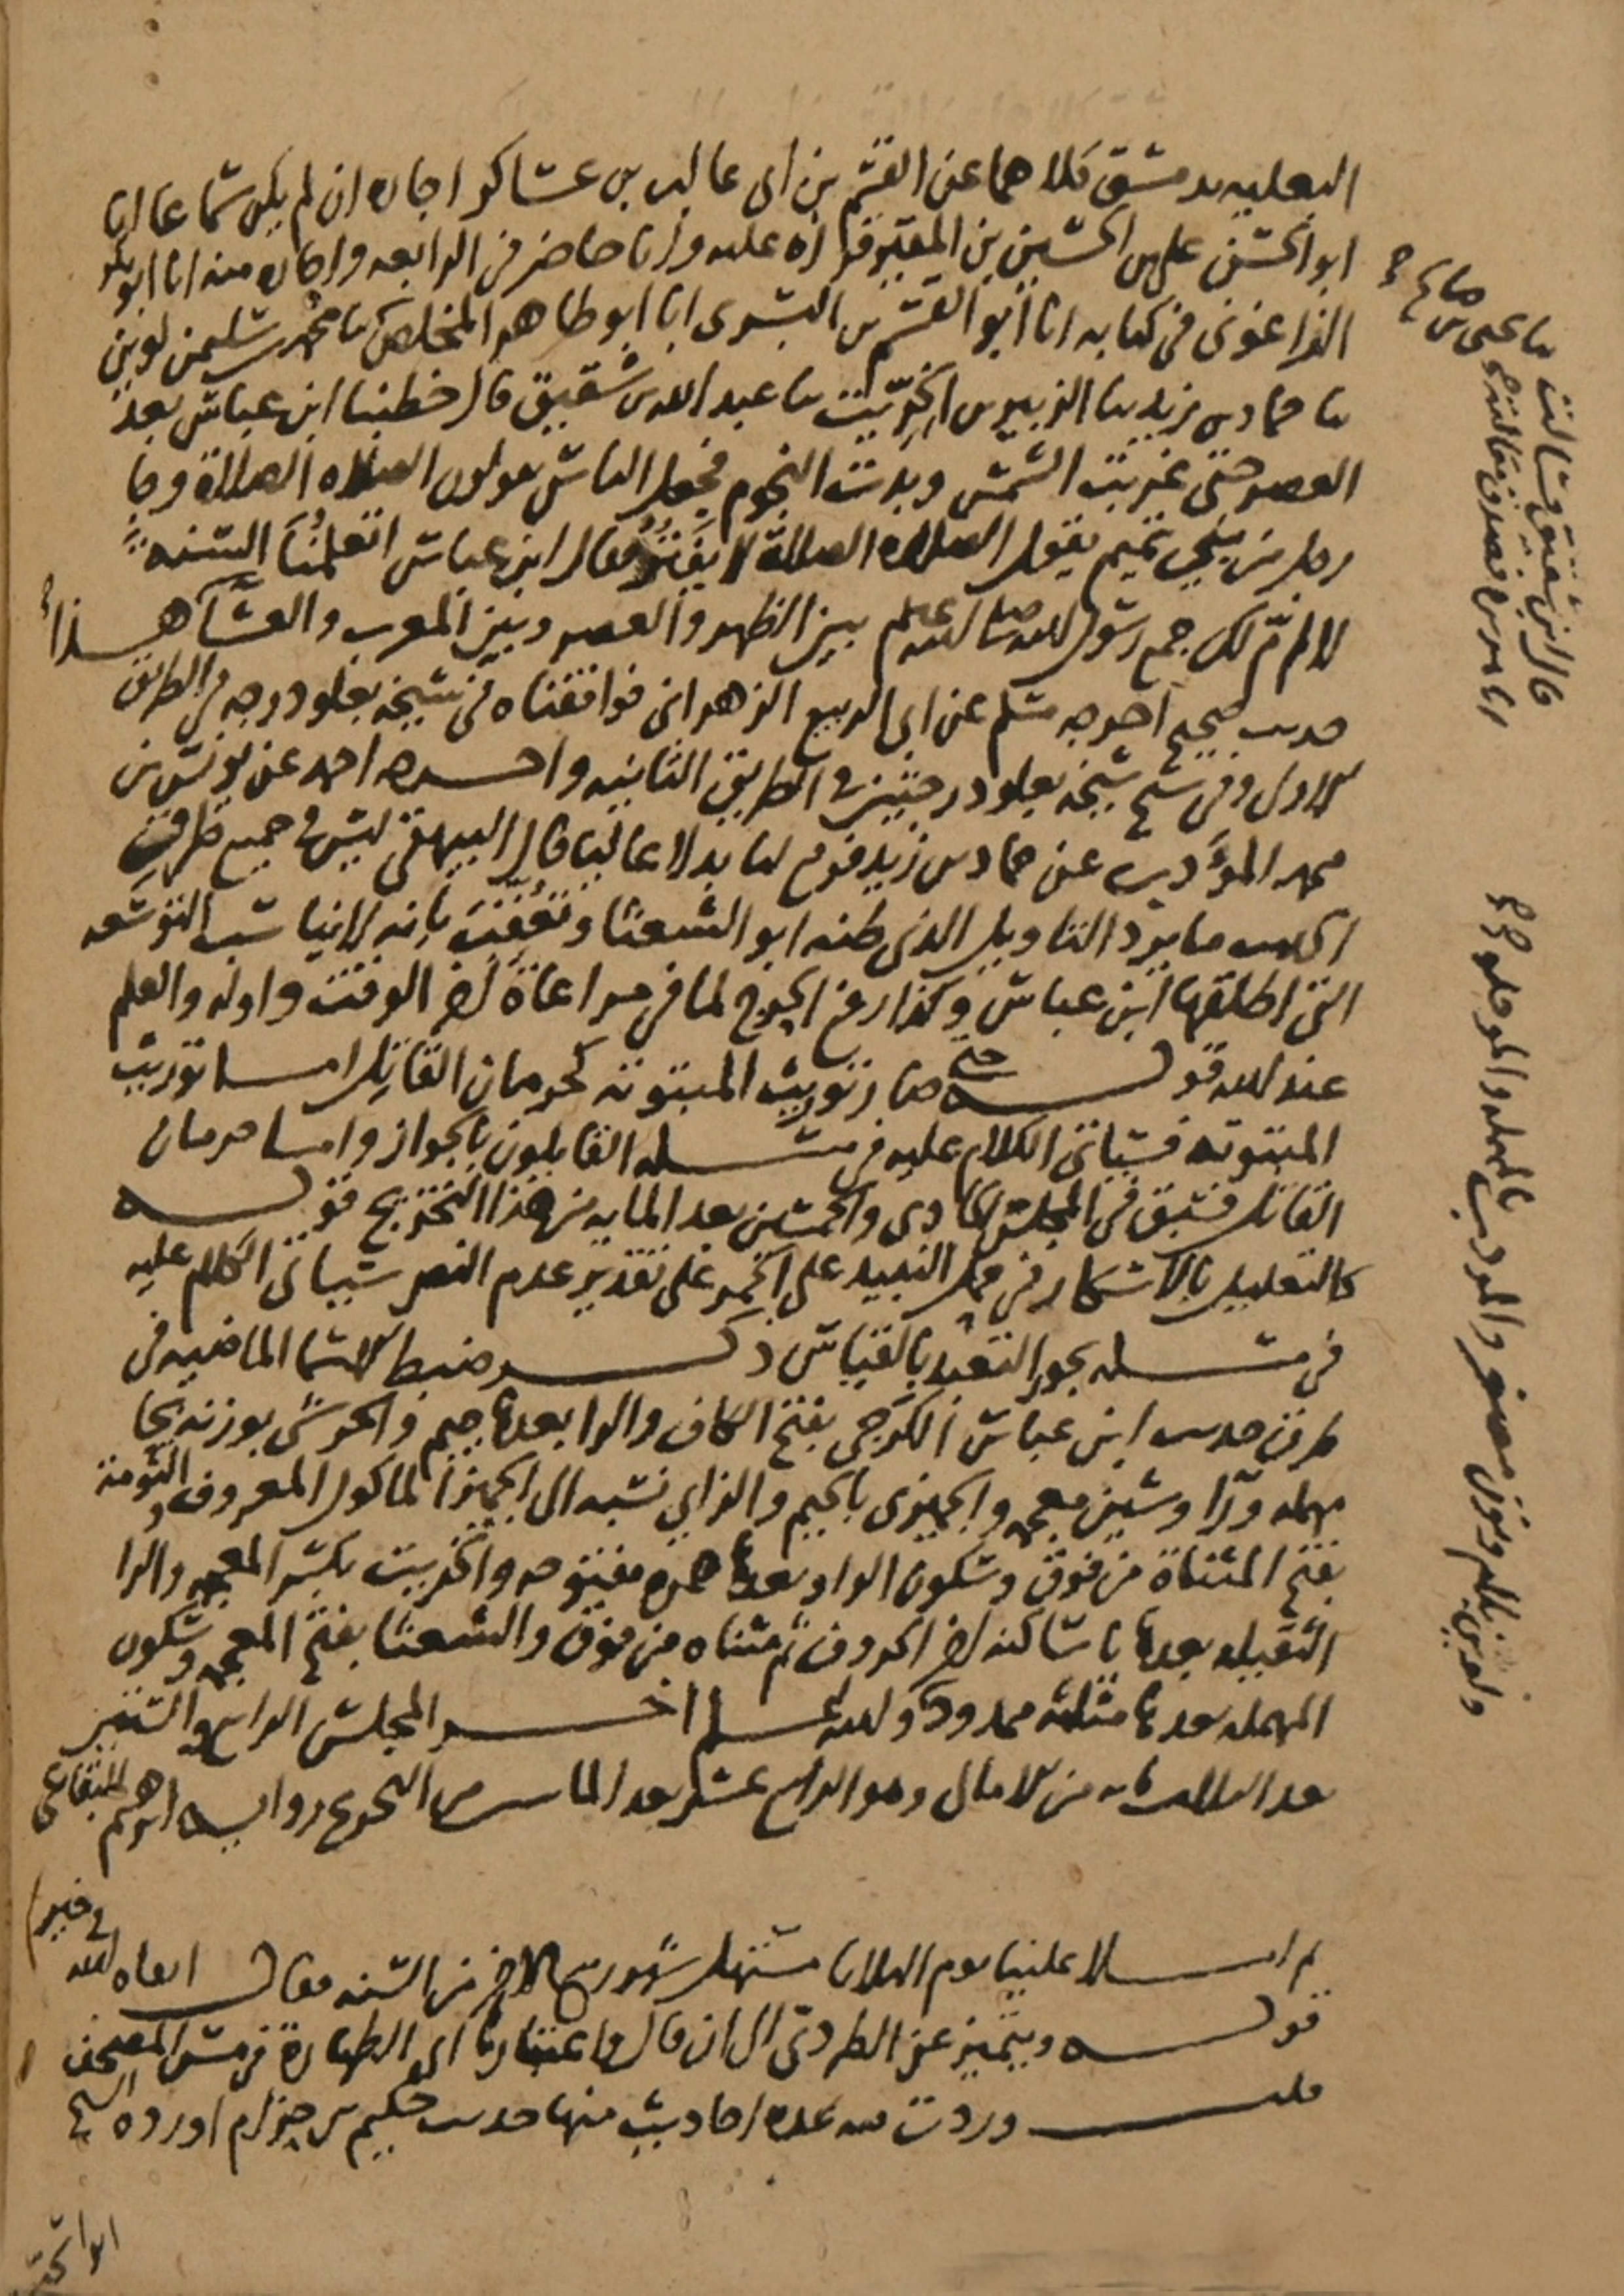 البعلية بدمشق كلاهما عن القسم بن ابي غالب بن عساكر اجازة ان لم يكن سماعا انا
ابو الحسن علي بن الحسين بن المقير قراة عليه وانا حاضر في الرابعة واجازة منه انا ابو بكر
الزاغوني في كتابه انا ابو القسم بن البسري انا ابو طاهر المخلص نا محمد بن سليمن لوين
نا حماد بن زيد نا الزبير بن الخريت نا عبد الله بن شقيق قال خطبنا ابن عباس بعد
العصر حتى غربت الشمس وبدت النجوم فجعل الناس يقولون الصلاة الصلاة وجا
رجل من بني تميم يقول الصلاة الصلاة لا يفتر فقال ابن عباس اتعلمنا السنة
لا ام لك جمع رسول الله صلى الله عليه وسلم بين الظهر والعصر وبين المغرب والعشا هذا
حديث صحيح اخرجه مسلم عن ابي الربيع الزهراني فوافقناه في شيخه بعلو درجة في الطريق
الاول وفي شيخ شيخه بعلو درجتين في الطريق الثانية واخرجه احمد عن يونس بن
محمد المؤدب عن حماد بن زيد فوقع لنا بدلا عاليا قال البيهقي ليس في جميع طرق
الحديث ما يرد التاويل الذي ظنه ابو الشعثا وتعقب بانه لا يناسب التوسعة
التي اطلقها ابن عباس وكذا رفع الحرج لما في مراعاة اخر الوقت واوله والعلم
عند الله قوله حتى صار توريث المبتوتة كحرمان القاتل اما توريث
المبتوتة فسياتي الكلام عليه في مسئلة القايلون بالجواز واما حرمان
القاتل فسبق في المجلس الحادي والخمسين بعد الماية من هذا التخريج قوله
كالتعليل بالاسكار في حمل النبيذ على الخمر على تقدير عدم النص سياتي الكلام عليه
في مسئلة يجوز التعبد بالقياس ذكر ضبط الاسما الماضية في
طرق حديث ابن عباس الكرجي بفتح الكاف والرا بعدها جيم والحرشي بوزنه بحا
مهملة ورا وشين معجمة والجبني بالجيم والزاي نسبه الى الجبن الماكول المعروف والتومة
بفتح المثناة من فوق وسكون الواو بعدها همزة مفتوحة والخريت بكسر المعجمة والرا
الثقيلة بعدها يا ساكنة اخر الحروف ثم مثناة من فوق والشعثا بفتح المعجمة وسكون
المهملة بعدها مثلثة ممدود والله اعلم اخر المجلس الرابع والستين
بعد الثلاثماية من الامالي وهو الرابع عشر بعد المايتين من التخريج رواية ابرهيم البقاعي
ثم املا علينا يوم الثلاثا مستهل شهر ربيع الاخر من السنة فقال ابقاه الله في خير
قوله ويتميز عن الطردي الى ان قال واعتبارها اي الطهارة في مس المصحف
قلت وردت فيه عدة احاديث منها حديث حكيم بن حزام اورده الشيخ
ابو اسحق